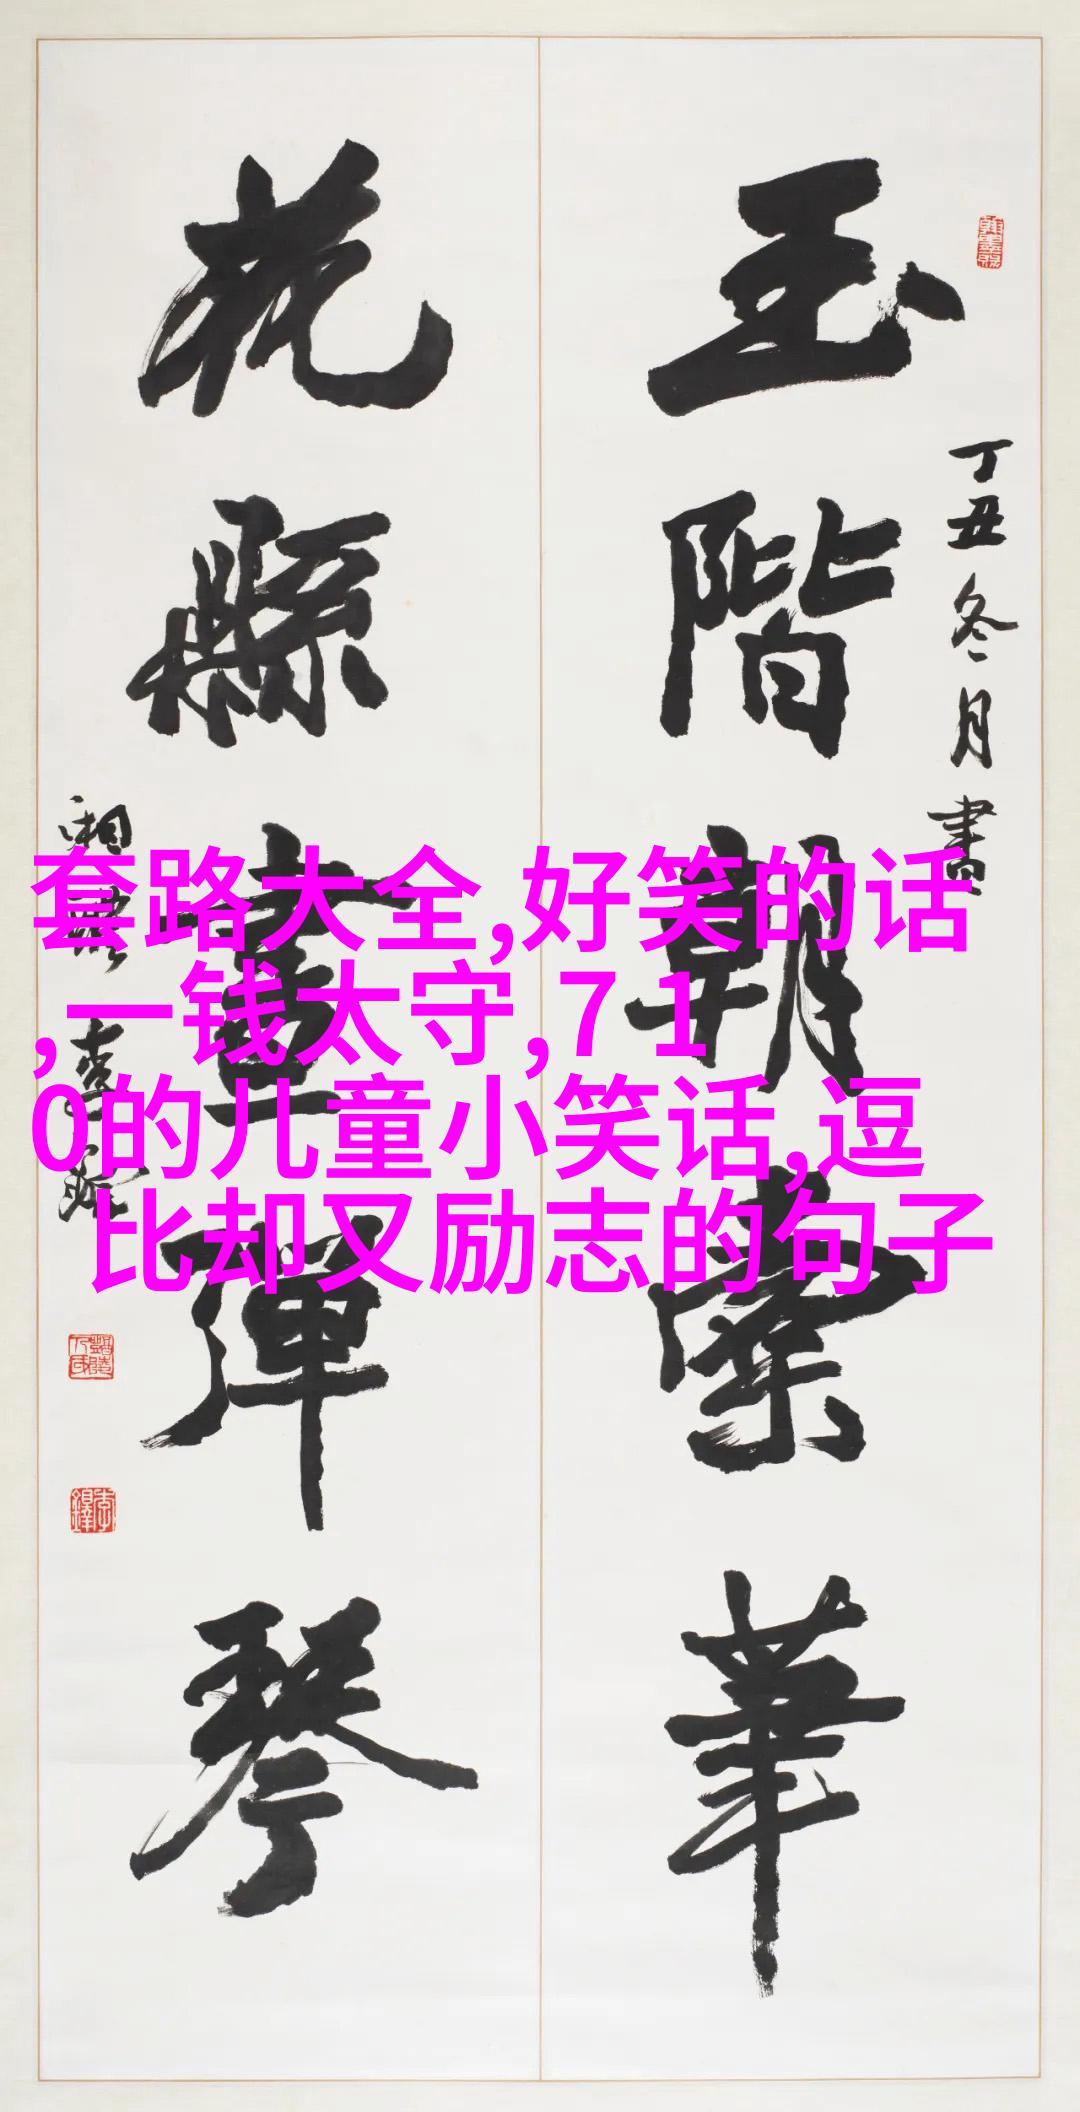 丁丑冬月書
玉階朝紫華
花縣畫彈琴
套路大全,好笑的话
,一钱太守,7 1
0的儿童小笑话,逗
比却又励志的句子